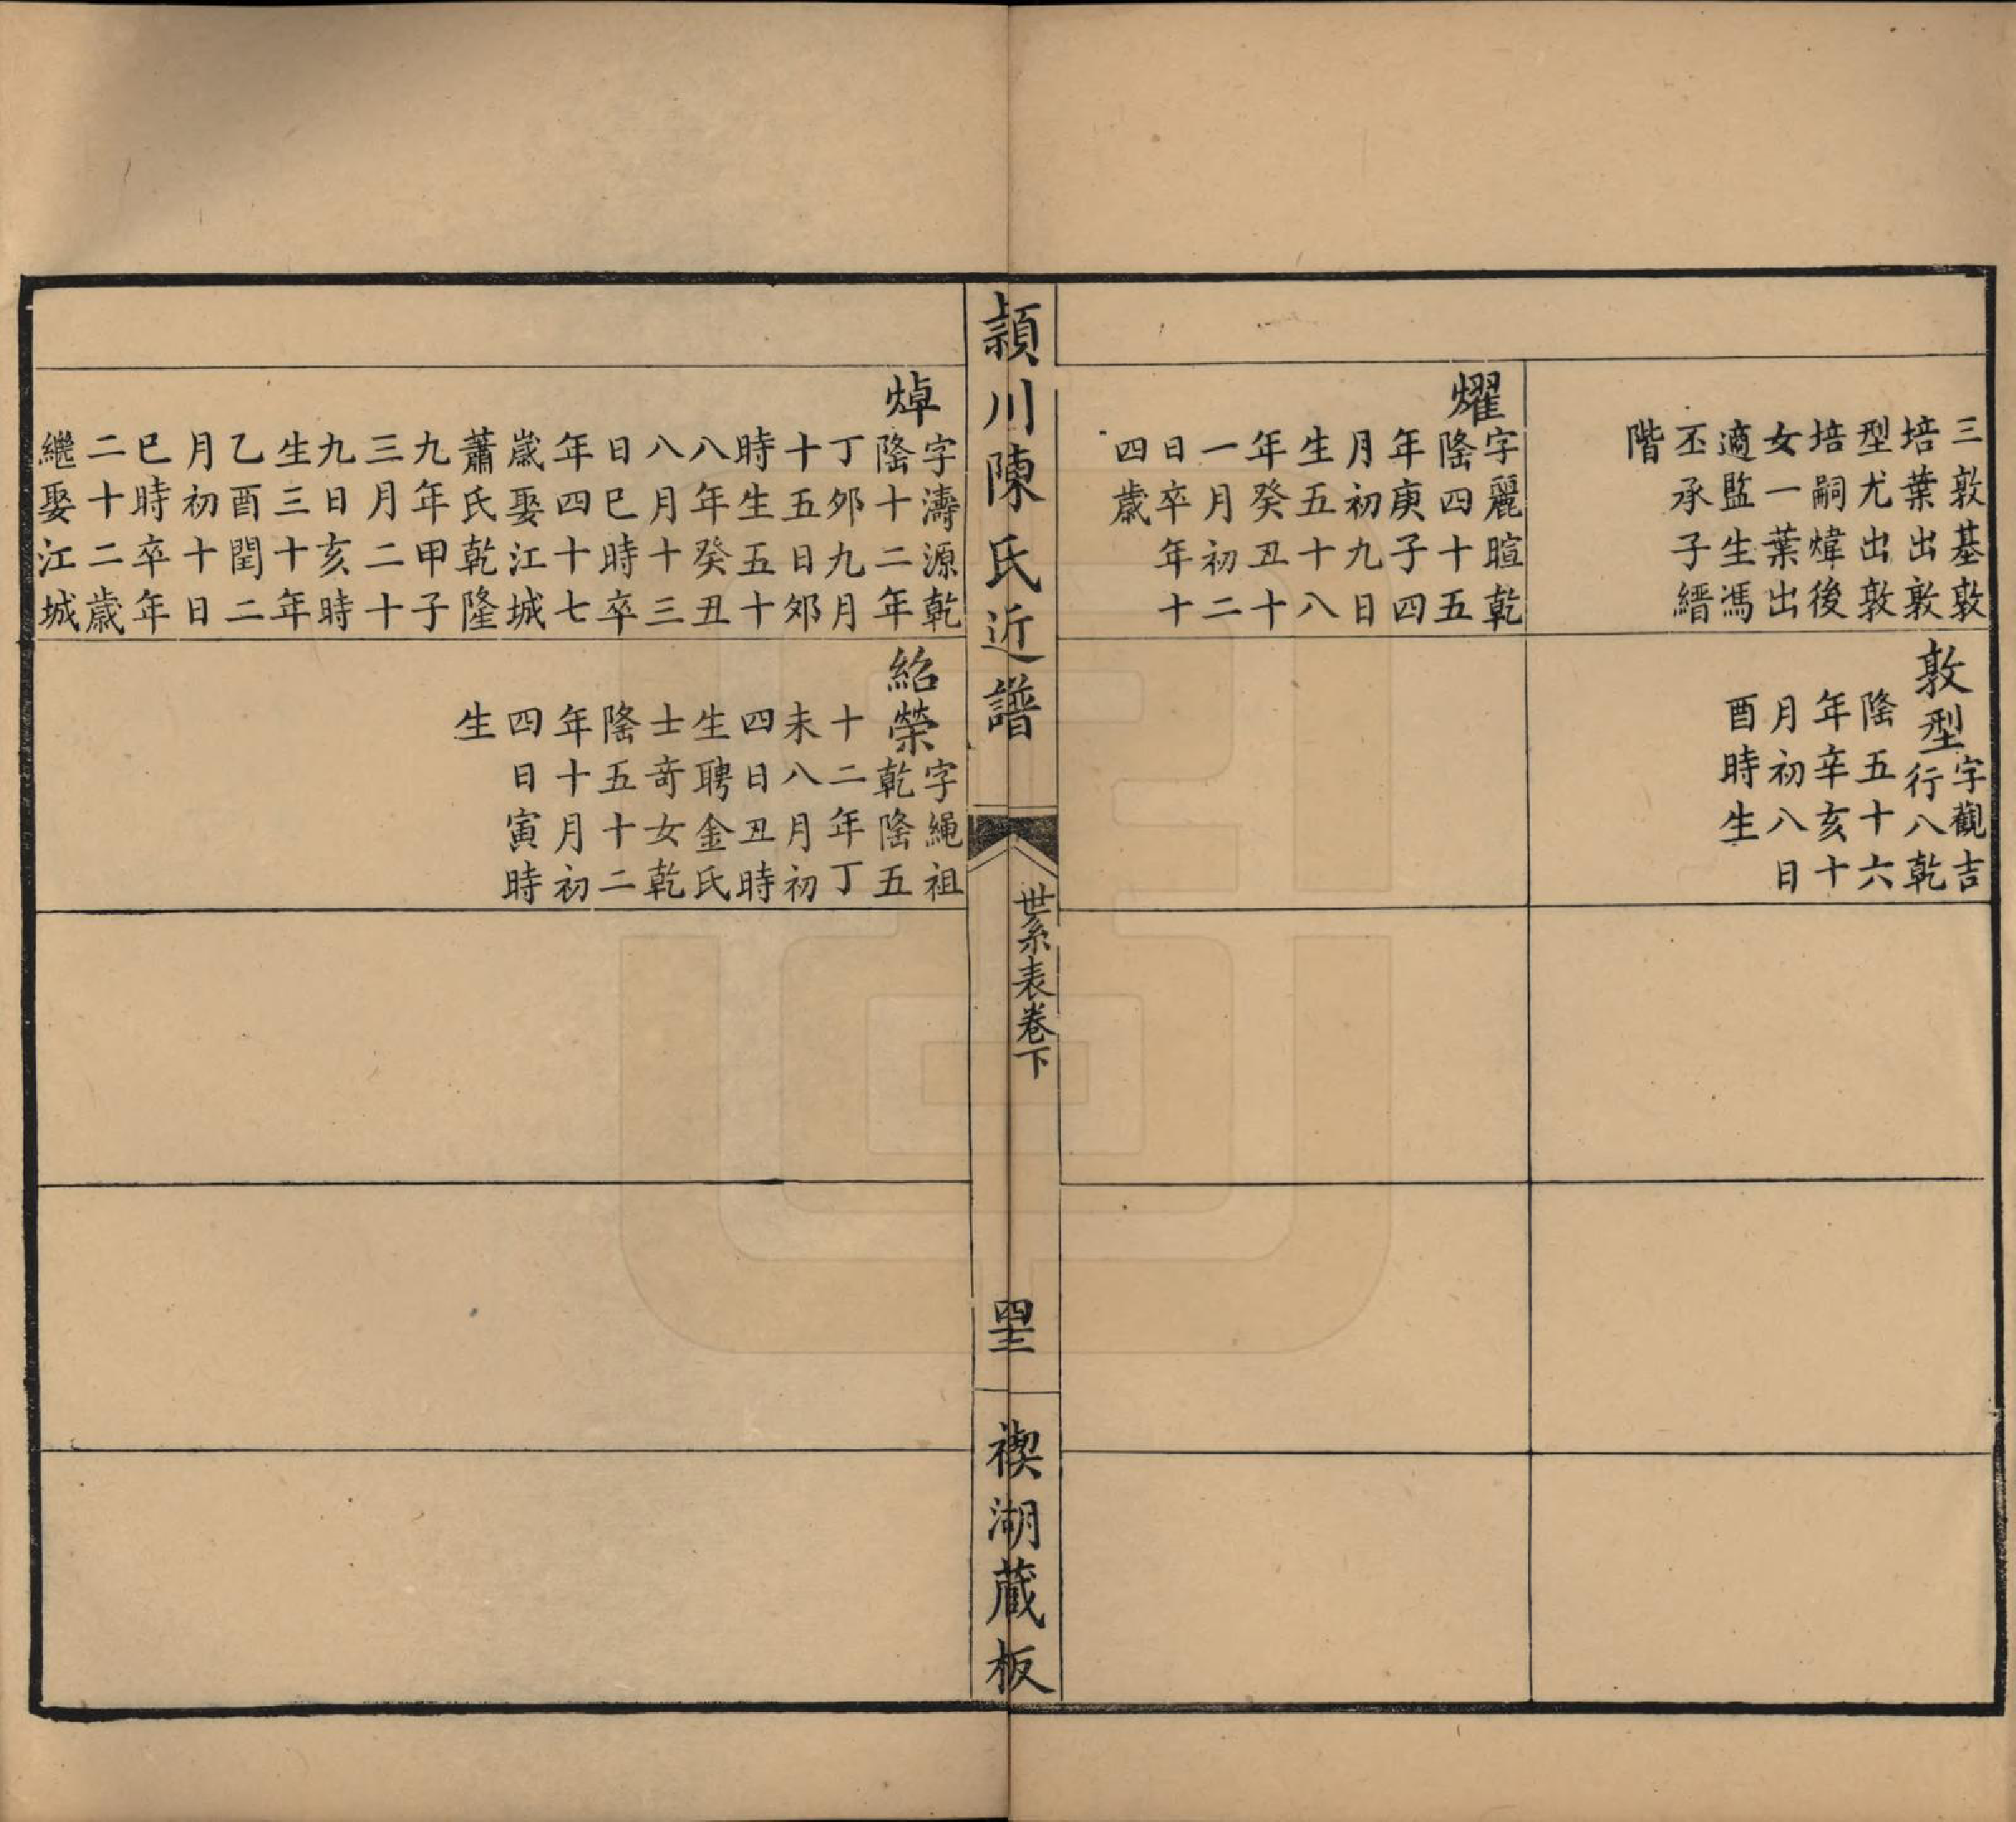 三敦基敦
培葉出敦
型尤出敦
培嗣煒後
女一葉出
適監生馮
丕承子縉
階
敦型
字觀吉
行八乾
隆五十六
年辛亥十
月初八日
酉時生
燿
字麗暄乾
隆四十五
年庚子四
月初九日
生五十八
年癸丑十
一月初二
日卒年十
四歲
潁川陳氏近譜
世系表卷下
罡
禊湖藏板
焯
字濤源乾
隆十二年
丁夘九月
十五日夘
時生五十
八年癸丑
八月十三
日巳時卒
年四十七
歲娶江城
蕭氏乾隆
九年甲子
三月二十
九日亥時
生三十年
乙酉閏二
月初十日
巳時卒年
二十二歲
繼娶江城
紹榮
字繩祖
乾隆五
十二年丁
未八月初
四日丑時
生聘金氏
士奇女乾
隆五十二
年十月初
四日寅時
生